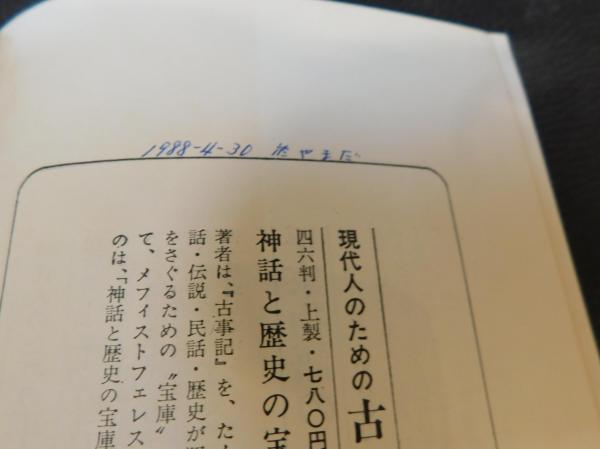 1988-4-30 たやまだ
現代人のための古
四六判・上製・七八〇円
神話と歴史の宝
著者は、『古事記』を、た
話・伝説・民話・歴史が
をさぐるための〝宝庫〟
て、メフィストフェレス
のは、「神話と歴史の宝庫